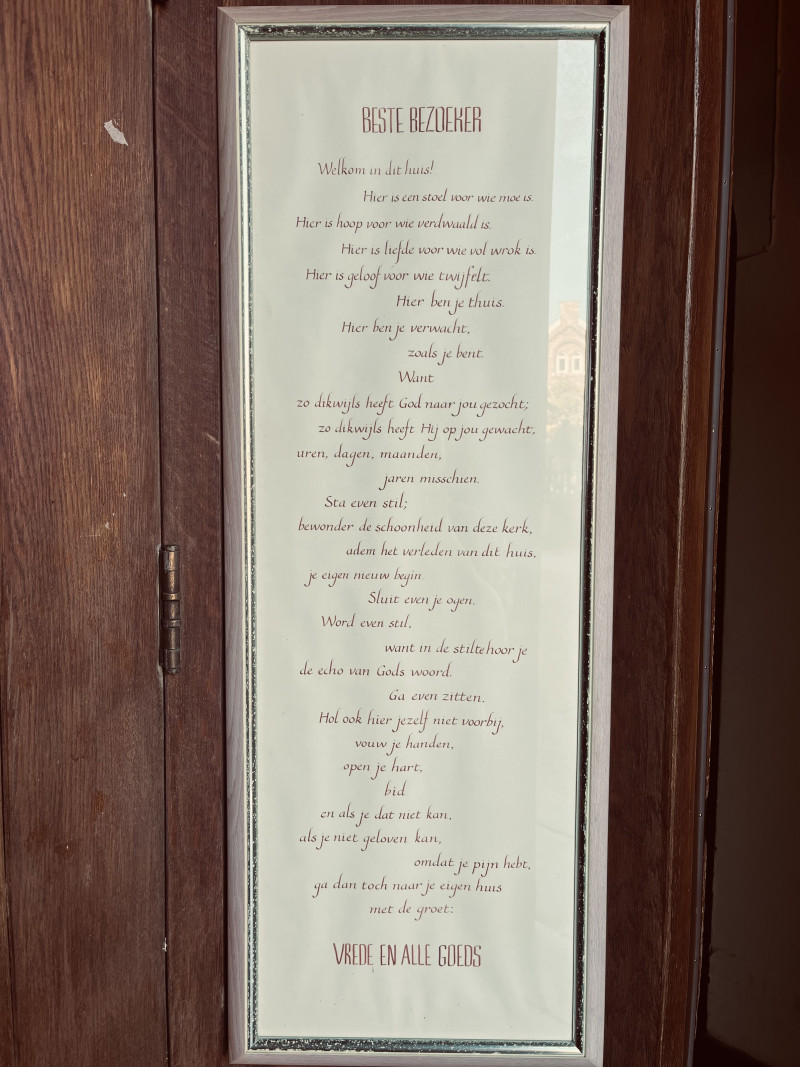 BESTE BEZOEKER
Welkom in dit huis!
Hier is een stoel voor wie moe is.
Hier is hoop voor wie verdwaald is.
Hier is liefde voor wie vol wrok is.
Hier is geloof voor wie twijfelt.
Hier ben je thuis.
Hier ben je verwacht,
zoals je bent.
Want
zo dikwijls heeft God naar jou gezocht;
zo dikwijls heeft Hij op jou gewacht,
uren, dagen, maanden,
jaren misschien.
Sta even stil;
bewonder de schoonheid van deze kerk,
adem het verleden van dit huis,
je eigen nieuw begin.
Sluit even je ogen.
Word even stil,
want in de stilte hoor je
de echo van Gods woord.
Ga even zitten.
Hol ook hier jezelf niet voorbij,
vouw je handen,
open je hart,
bid
en als je dat niet kan,
als je niet geloven kan,
omdat je pijn hebt,
ga dan toch naar je eigen huis
met de groet:
VREDE EN ALLE GOEDS